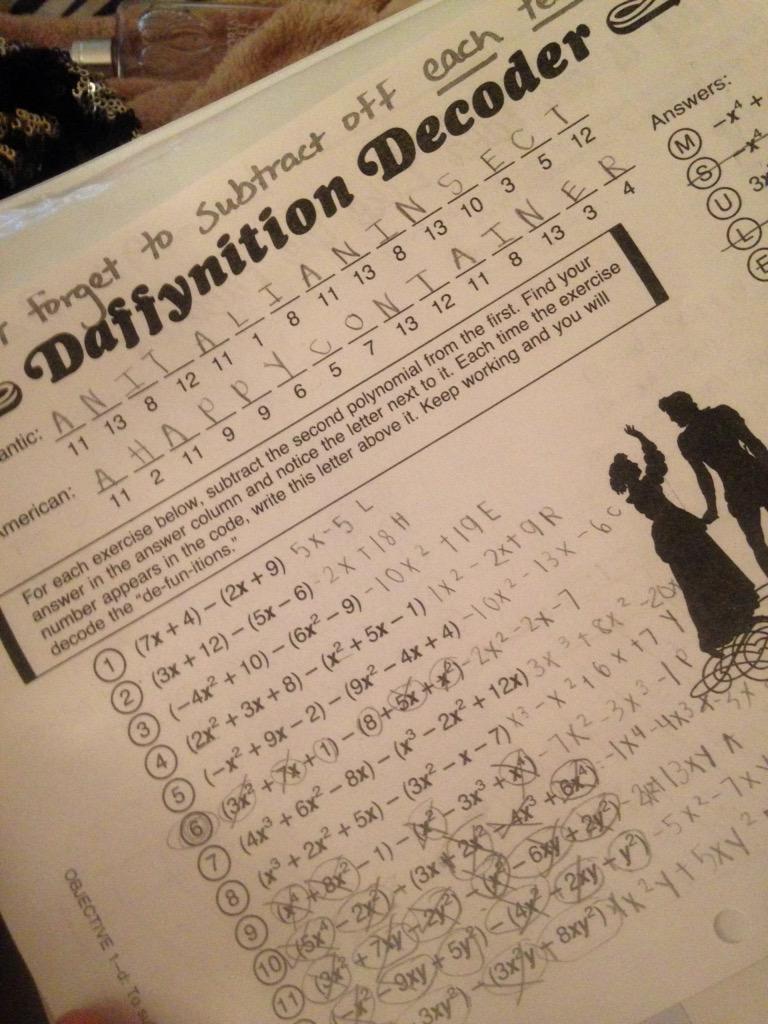 forget to subtract off each
Daffynition Decoder
antic: A N I T A L I A N I N S E C T
11 13 8 12 11 1 8 11 13 8 13 10 3 5 12
American: A H A P P Y C O N T A I N E R
11 2 11 9 9 6 5 7 13 12 11 8 13 3 4
For each exercise below, subtract the second polynomial from the first. Find your
answer in the answer column and notice the letter next to it. Each time the exercise
number appears in the code, write this letter above it. Keep working and you will
decode the "de-fun-itions."
Answers:
M −x⁴ +
S −x⁴
U 3x
L
E
1 (7x + 4) − (2x + 9) 5x−5 L
2 (3x + 12) − (5x − 6) -2x+18 H
3 (−4x² + 10) − (6x² − 9) -10x² +19 E
4 (2x² + 3x + 8) − (x² + 5x − 1) 1x² - 2x+9 R
5 (−x² + 9x − 2) − (9x² − 4x + 4) -10x² -13x -6 C
6 (3x² + 7x + 1) − (8 + 5x + x²) -2x²-2x-7
7 (4x³ + 6x² − 8x) − (x³ − 2x² + 12x) 3x³ + 8x² -20x
8 (x³ + 2x² + 5x) − (3x² − x − 7) x³ - x² + 6x +7
9 (x⁴ + 8x² − 1) − (x² − 3x³ + x⁴) -7x² -3x³ -1 P
10 (5x⁴ − 2x²) − (3x + 2x² − 4x³ + 6x⁴) -1x⁴ -4x³
11 (3x² + 7xy − 2y²) − (x² − 6xy + 2y²) 13xy A
(−x² − 9xy + 5y²) − (4x² − 2xy + y²) -5x² -7xy
3xy²) − (3x²y − 8xy²) x²y + 5xy²
OBJECTIVE 1–d: To su